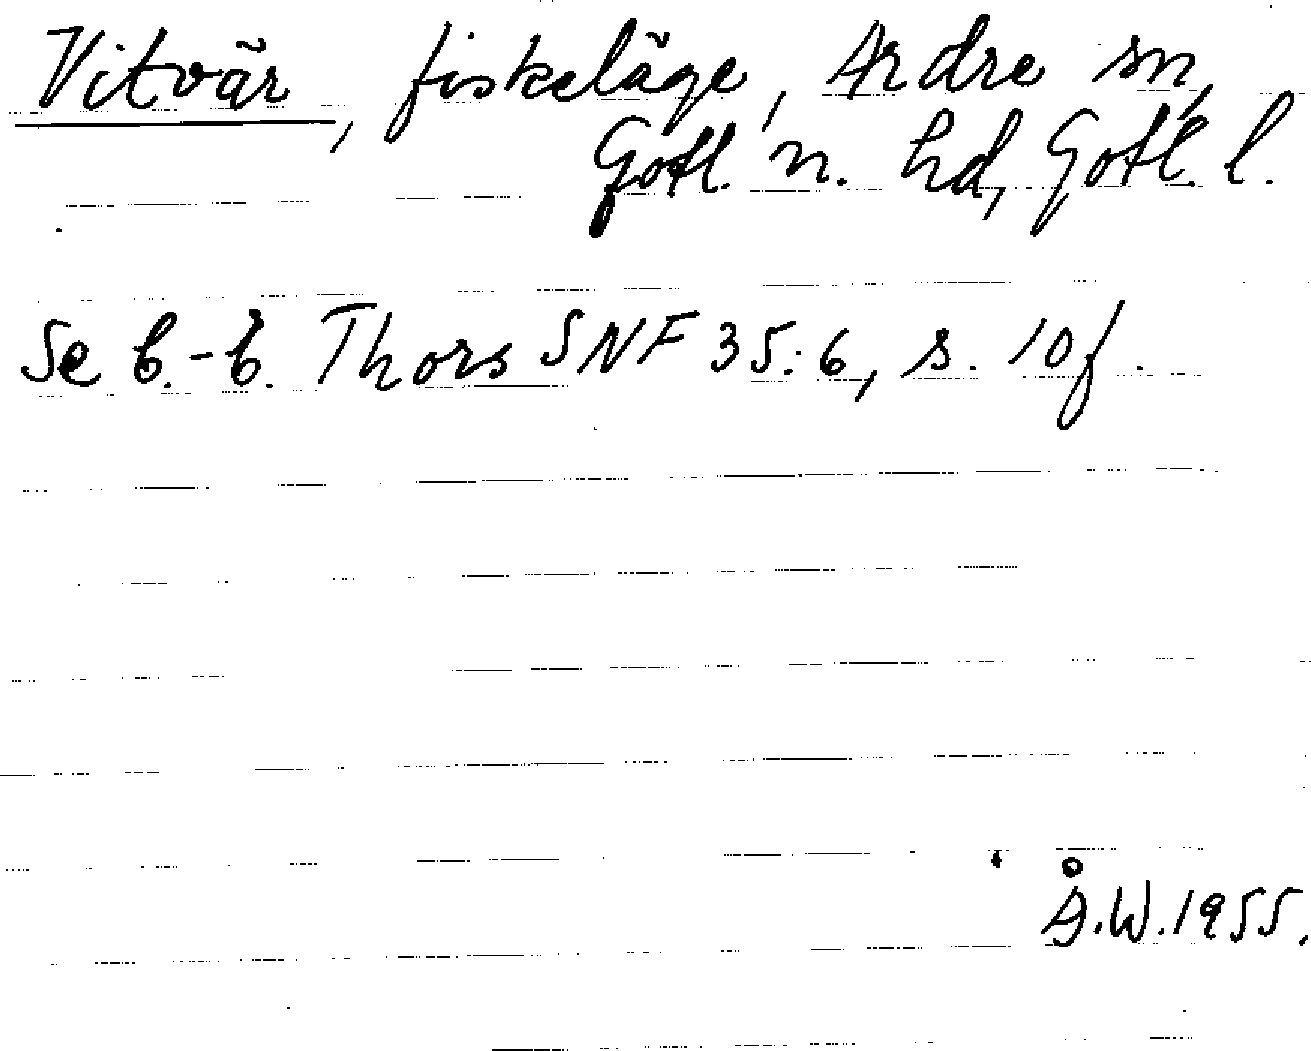 Vitvär, fiskeläge, Ardre sn,
Gotl. n. hd, Gotl. l.
Se C.-E. Thors SNF 35:6, s. 10f.
Å.W. 1955.